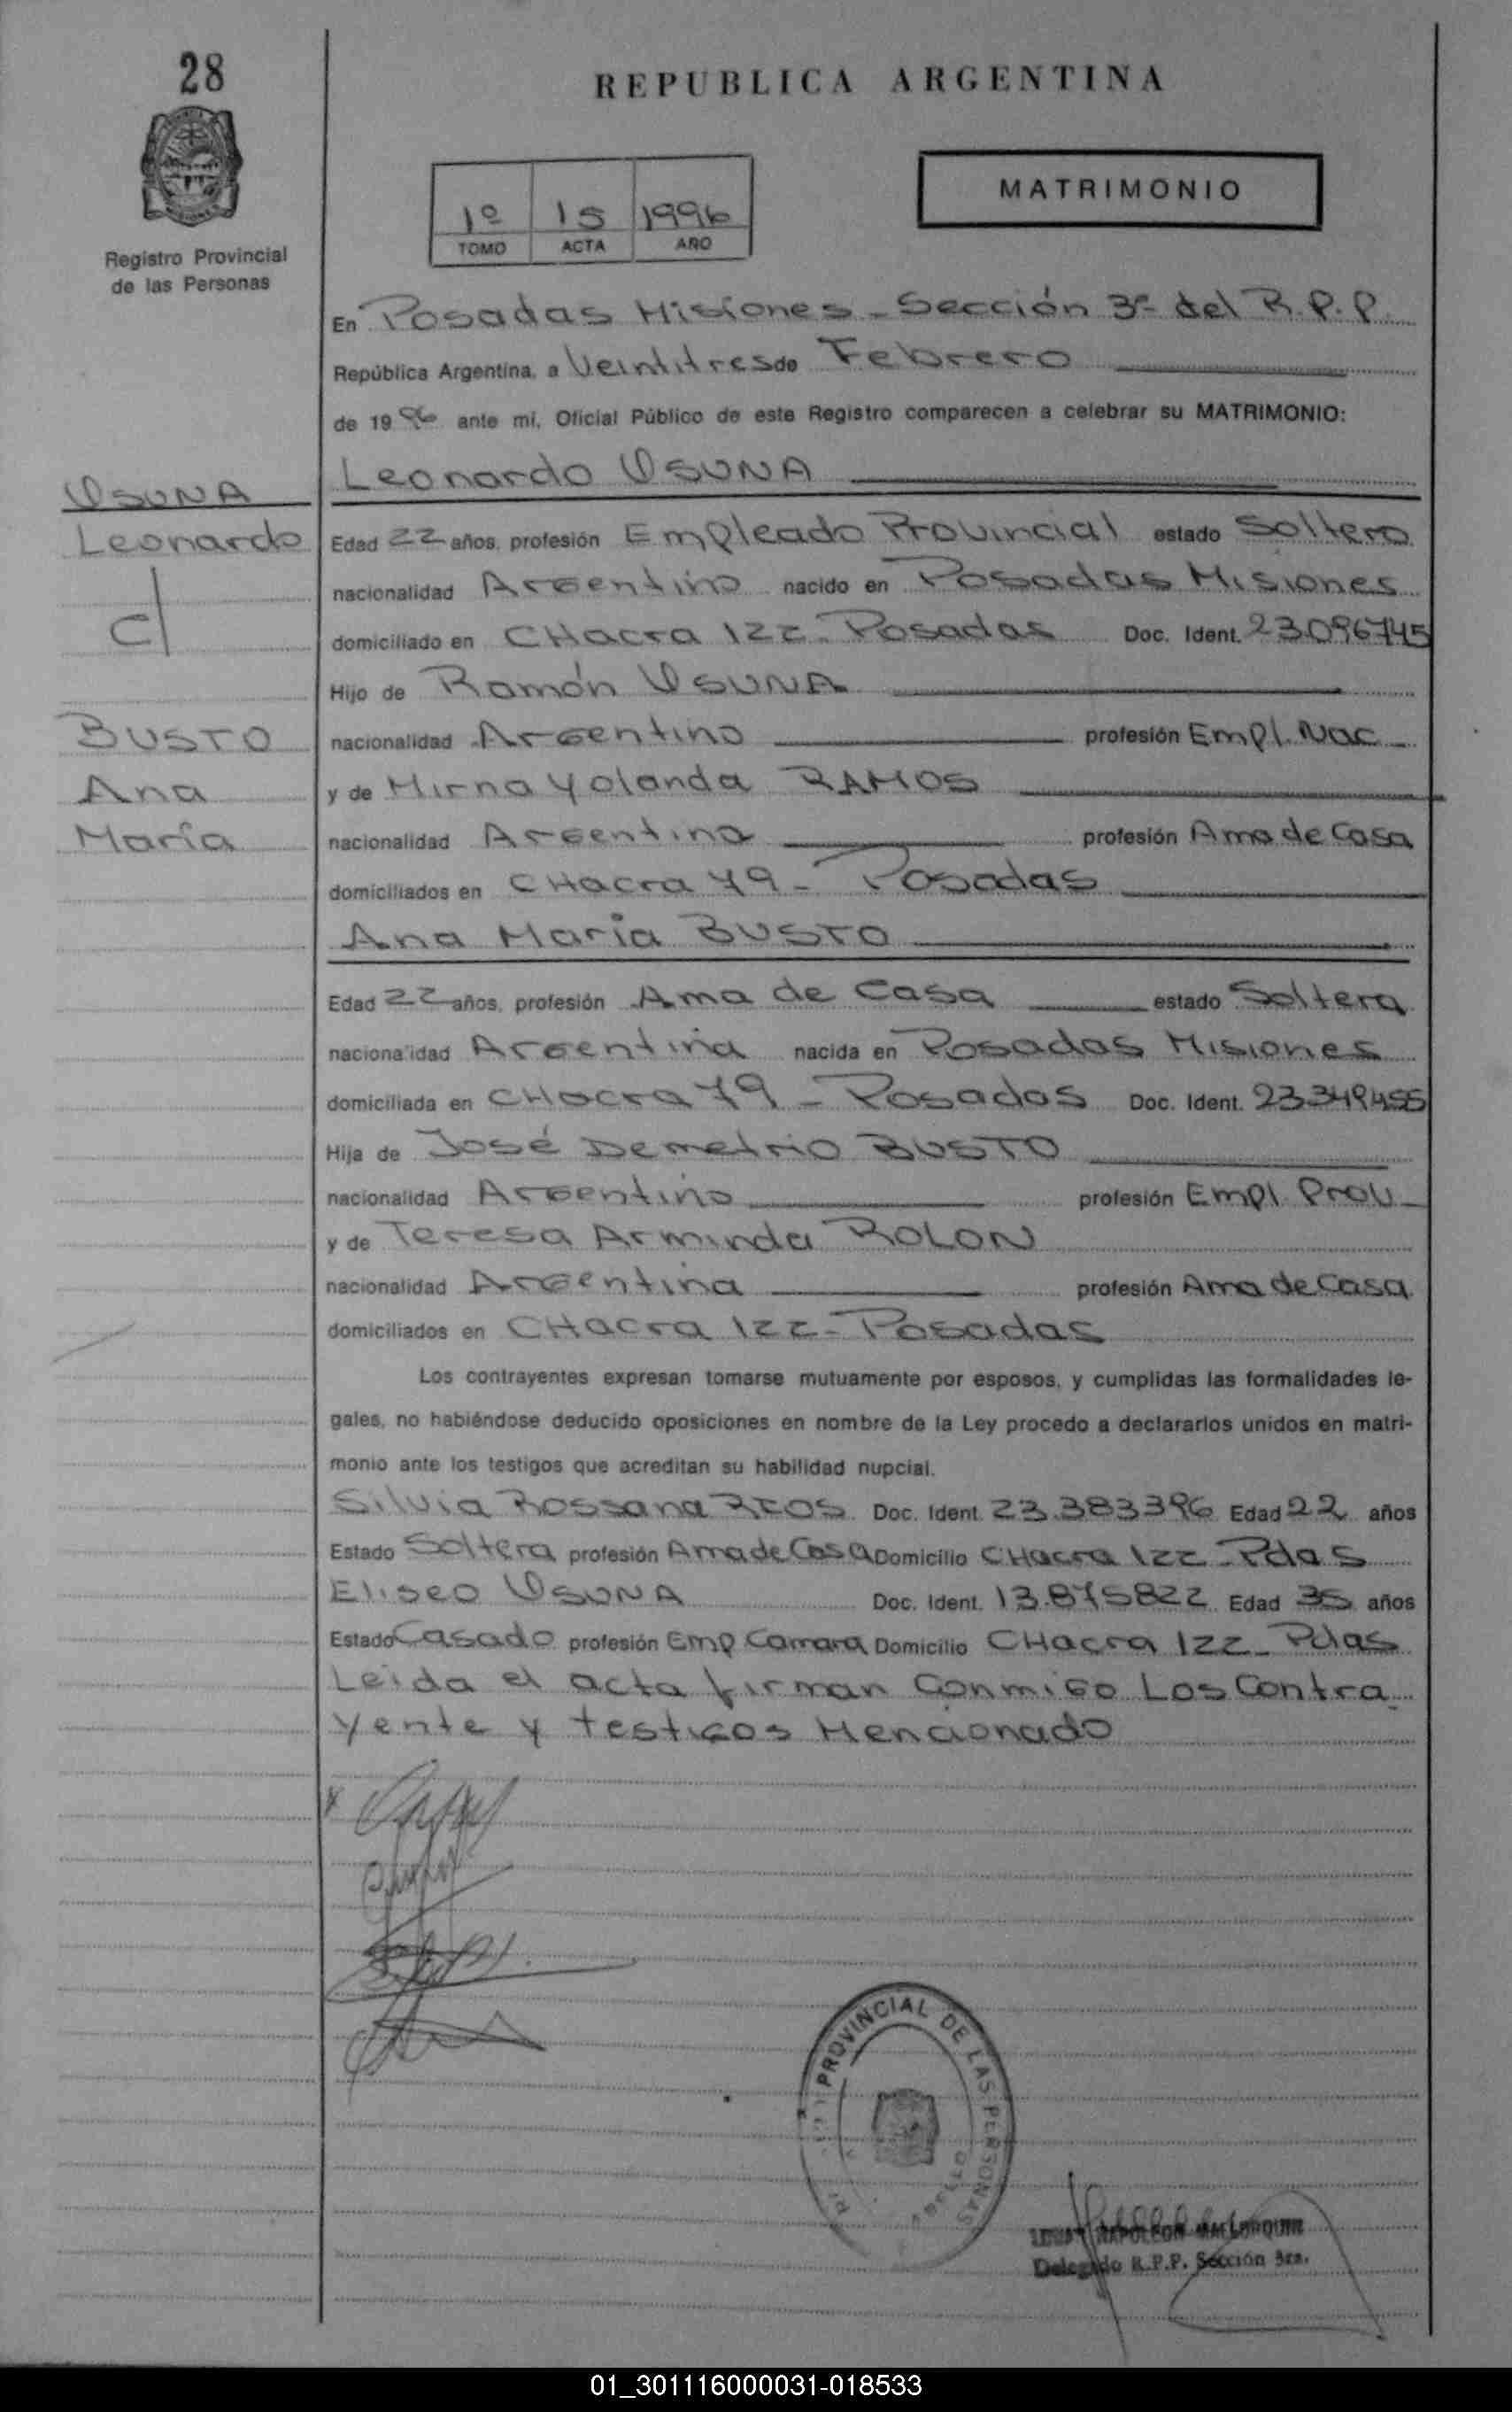 28
REPUBLICA ARGENTINA
MATRIMONIO
1º 15 1996
TOMO ACTA AÑO
Registro Provincial
de las Personas
En Posadas Misiones - Sección 3ª del R.P.P.
República Argentina, a Veintitres de Febrero
de 1996 ante mi, Oficial Público de este Registro comparecen a celebrar su MATRIMONIO:
Leonardo OSUNA
OSUNA
Leonardo
c/
BUSTO
Ana
María
Edad 22 años, profesión Empleado Provincial estado Soltero
nacionalidad Argentino nacido en Posadas Misiones
domiciliado en CHacra 122 - Posadas Doc. Ident. 23.096745
Hijo de Ramón OSUNA
nacionalidad Argentino profesión Empl. Nac
y de Mirna Yolanda RAMOS
nacionalidad Argentina profesión Ama de Casa
domiciliados en CHacra 79 - Posadas
Ana María BUSTO
Edad 22 años, profesión Ama de Casa estado Soltera
nacionalidad Argentina nacida en Posadas Misiones
domiciliada en CHacra 79 - Posadas Doc. Ident. 23.349455
Hija de José Demetrio BUSTO
nacionalidad Argentino profesión Empl Prov
y de Teresa Arminda ROLON
nacionalidad Argentina profesión Ama de Casa
domiciliados en CHacra 122 - Posadas
Los contrayentes expresan tomarse mutuamente por esposos, y cumplidas las formalidades le-
gales, no habiéndose deducido oposiciones en nombre de la Ley procedo a declararlos unidos en matri-
monio ante los testigos que acreditan su habilidad nupcial.
Silvia Rossana RIOS Doc. Ident. 23.383396 Edad 22 años
Estado Soltera profesión Ama de Casa Domicilio CHacra 122 - Pdas
Eliseo OSUNA Doc. Ident. 13.875822 Edad 35 años
Estado Casado profesión Emp Camara Domicilio CHacra 122 - Pdas
Leida el acta firman Conmigo Los Contra
yente y testigos Mencionado
PROVINCIAL DE LAS PERSONAS
NAPOLEON
Delegado R.P.P. Sección 3ra.
01_301116000031-018533